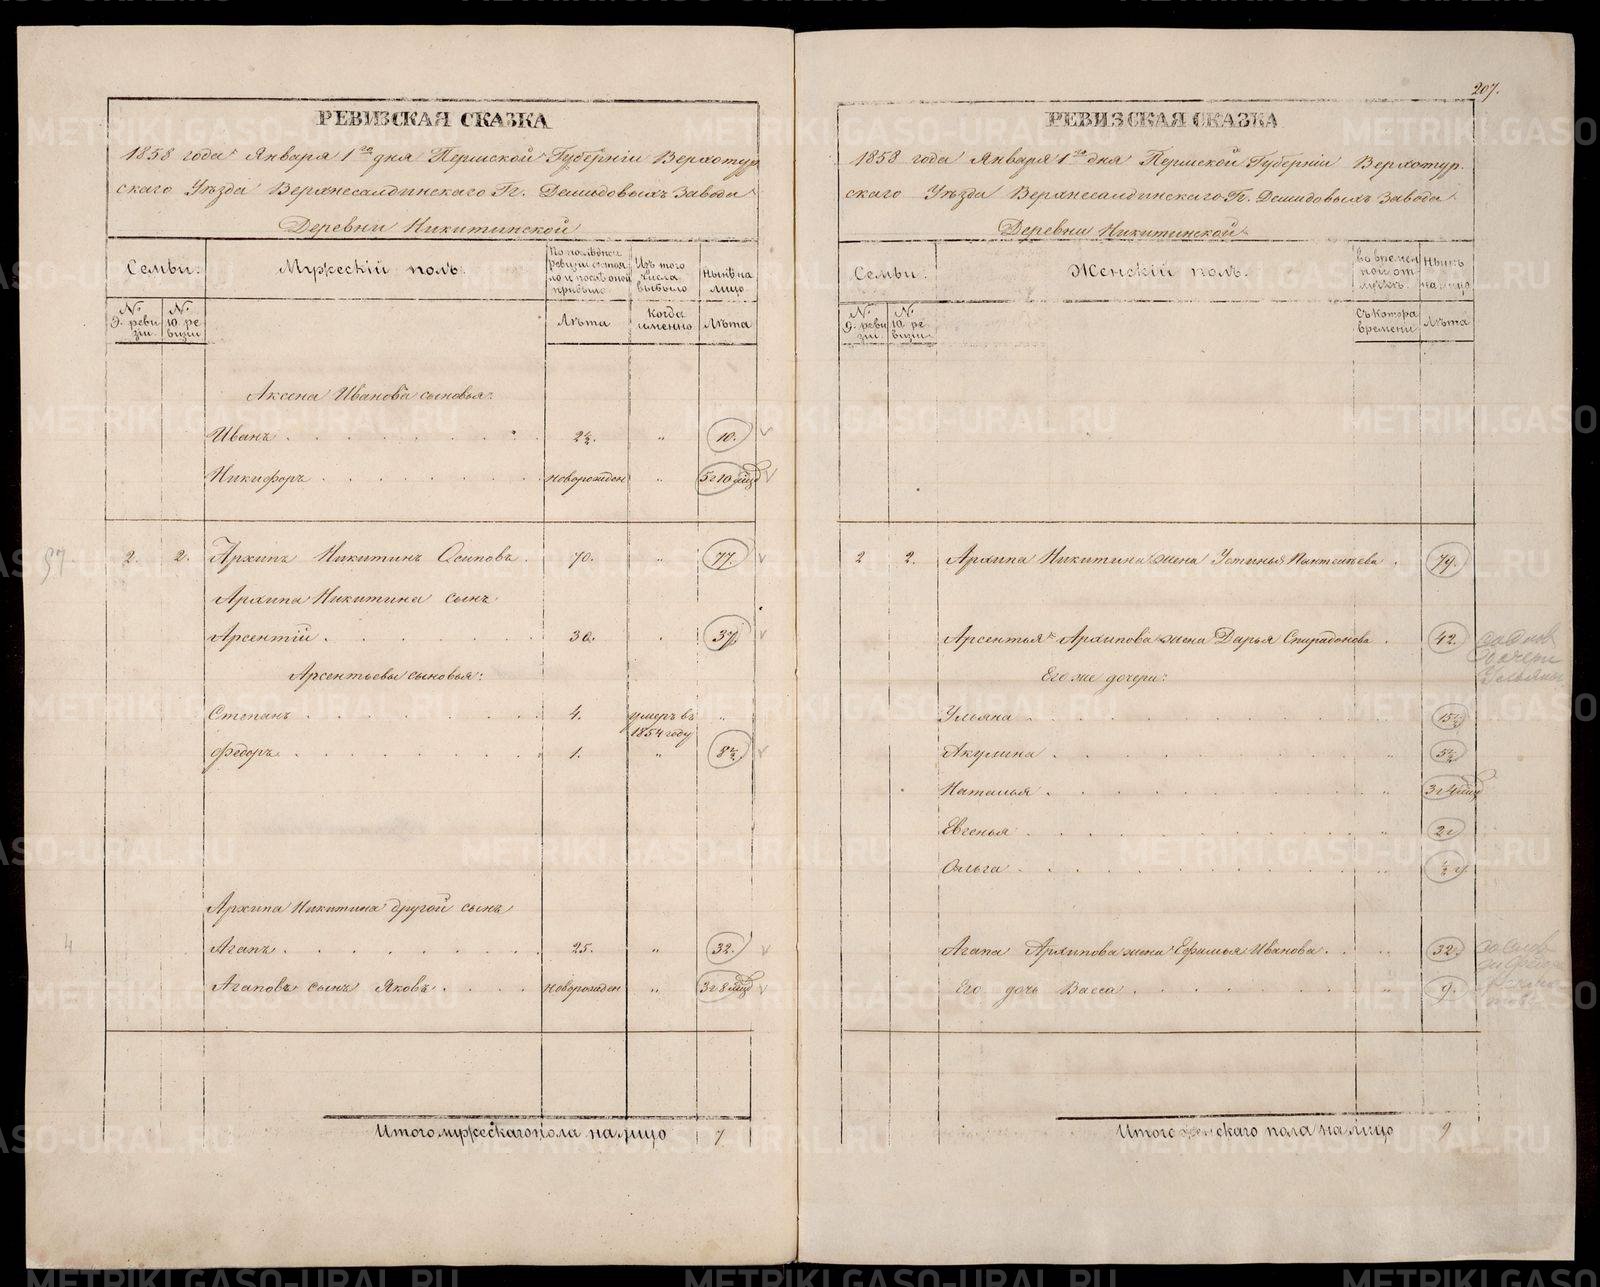 РЕВИЗСКАЯ СКАЗКА
1858 года Января 1го дня Пермской Губерніи Верхотур
скаго Уѣзда Верхнесалдинскаго Гг. Демидовыхъ Завода
Деревни Никитинской
Семьи.
Мужескій полъ.
По послѣдней ревизіи состоя ло и послѣ оной прибыло
Изъ того числа выбыло
Нынѣ на лицо
№ 9. реви зіи
№ 10. ре визіи
Лѣта
Когда именно
Лѣта
Аксена Иванова сыновья:
Иванъ 2½. " 10.
Никифоръ новорожден " 5 г 10 мѣс
97. 2. 2. Архипъ Никитинъ Осиповъ. 70. " 77.
Архипа Никитина сынъ
Арсентій. 30. 37.
Арсентьевы сыновья:
Степанъ 4. умеръ въ 1854 году "
Федоръ 1. " 8½
Архипа Никитина другой сынъ
4 Агапъ. 25. " 32.
Агаповъ сынъ Яковъ. новорожден " 3 г 8 мѣс
Итого мужескаго пола на лицо 7
207.
РЕВИЗСКАЯ СКАЗКА
1858 года Января 1го дня Пермской Губерніи Верхотур.
скаго Уѣзда Верхнесалдинскаго Гг. Демидовыхъ Завода
Деревни Никитинской
Семьи.
Женскій полъ.
Во времен ной от лучкѣ.
Нынѣ на лицо
№ 9. реви зіи
№ 10. ре визіи
Съ котора времени
Лѣта
2 2. Архипа Никитина жена Устинья Пантелѣева. 79.
Арсентья Архипова жена Дарья Спиридонова. 42.
Его же дочери:
Ульяна 15½
Акулина 5½
Наталья 3 г 4 мѣс
Евгенья 2 г
Ольга ½ г.
Агапа Архипова жена Ефимья Иванова. 32.
Его дочь Васса 9.
Итого женскаго пола на лицо 9
METRIKI.GASO-URAL.RU